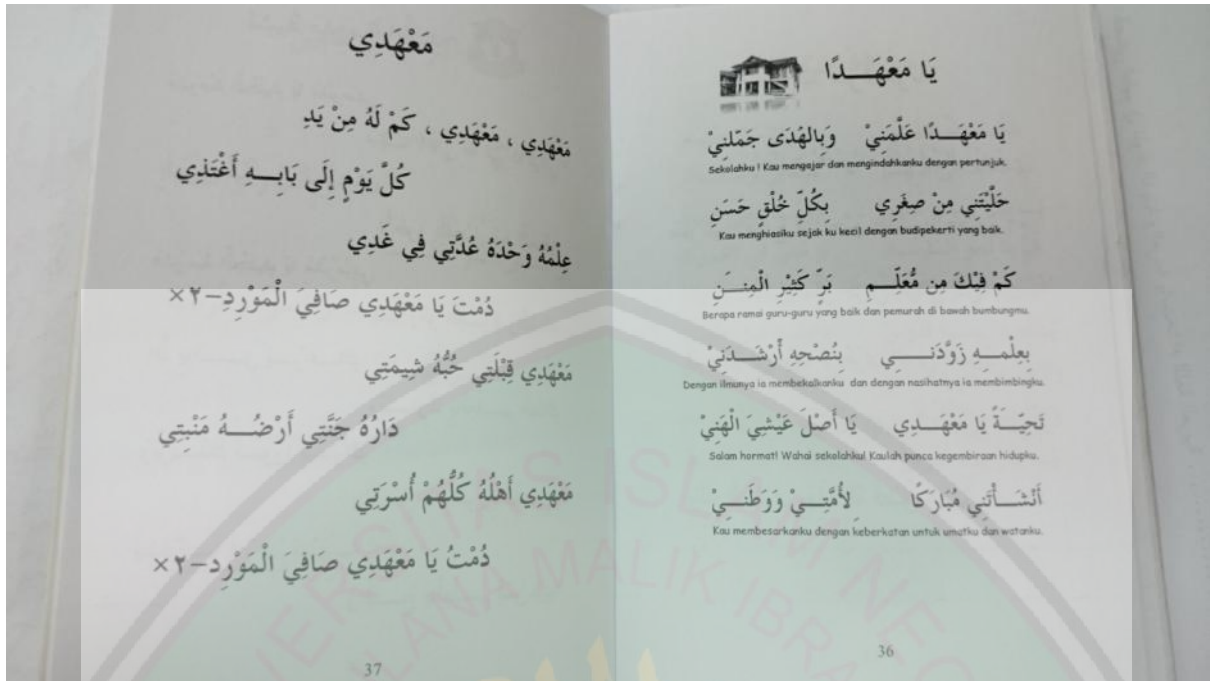 يَا مَعْهَـــدًا
يَا مَعْهَـــدًا عَلَّمَنِيْ وَبِالهُدَى جَمَّلنِيْ
Sekolahku ! Kau mengajar dan mengindahkanku dengan pertunjuk.
حَلَّيْتَنِي مِنْ صِغَرِي بِكُلِّ خُلْقٍ حَسَنِ
Kau menghiasiku sejak ku kecil dengan budipekerti yang baik.
كَمْ فِيْكَ مِن مُّعَلِّـــمٍ بَرٍّ كَثِيْرِ الْمِنَـــنِ
Berapa ramai guru-guru yang baik dan pemurah di bawah bumbungmu.
بِعِلْمـــهِ زَوَّدَنـــــي بِنُصْحِهِ أَرْشَـــدَنِيْ
Dengan ilmunya ia membekalkanku dan dengan nasihatnya ia membimbingku.
تَحِيَّـــةً يَا مَعْهَـــدِي يَا أَصْلَ عَيْشِيَ الْهَنِيْ
Salam hormat! Wahai sekolahku! Kaulah punca kegembiraan hidupku.
أَنْشَـــأْتَنِي مُبَارَكًا لِأُمَّتِـــيْ وَوَطَنـــِيْ
Kau membesarkanku dengan keberkatan untuk umatku dan watanku.
36
مَعْهَدِي
مَعْهَدِي ، مَعْهَدِي ، كَمْ لَهُ مِنْ يَدِ
كُلَّ يَوْمٍ إِلَى بَابِـــهِ أَغْتَذِي
عِلْمُهُ وَحْدَهُ عُدَّتِي فِي غَدِي
دُمْتَ يَا مَعْهَدِي صَافِيَ الْمَوْرِدِ–٢×
مَعْهَدِي قِبْلَتِي حُبُّهُ شِيمَتِي
دَارُهُ جَنَّتِي أَرْضُـــهُ مَنْبِتِي
مَعْهَدِي أَهْلُهُ كُلُّهُمْ أُسْرَتِي
دُمْتُ يَا مَعْهَدِي صَافِيَ الْمَوْرِد–٢×
37